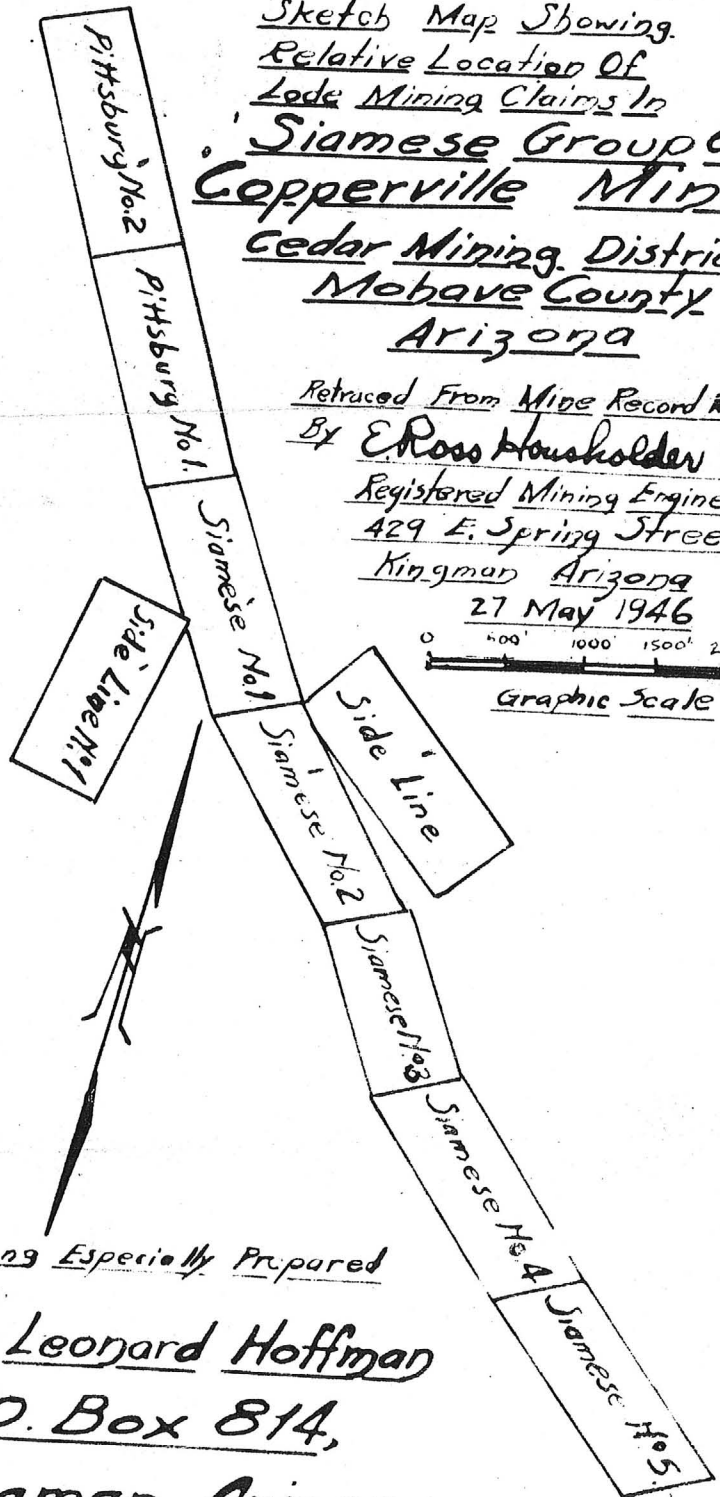 Sketch Map Showing
Relative Location Of
Lode Mining Claims In
Siamese Group
Copperville Min
Cedar Mining Distric
Mohave County
Arizona
Retraced From Mine Record
By E. Ross Housholder
Registered Mining Engine
429 E. Spring Stree
Kingman Arizona
27 May 1946
0 500' 1000' 1500' 2
Graphic Scale
Pittsburg No.2
Pittsburg No1.
Siamese No1
Side Line No1
Side Line
Siamese No.2
Siamese No3
Siamese No.4
Siamese No5.
ng Especially Prepared
Leonard Hoffman
O. Box 814,